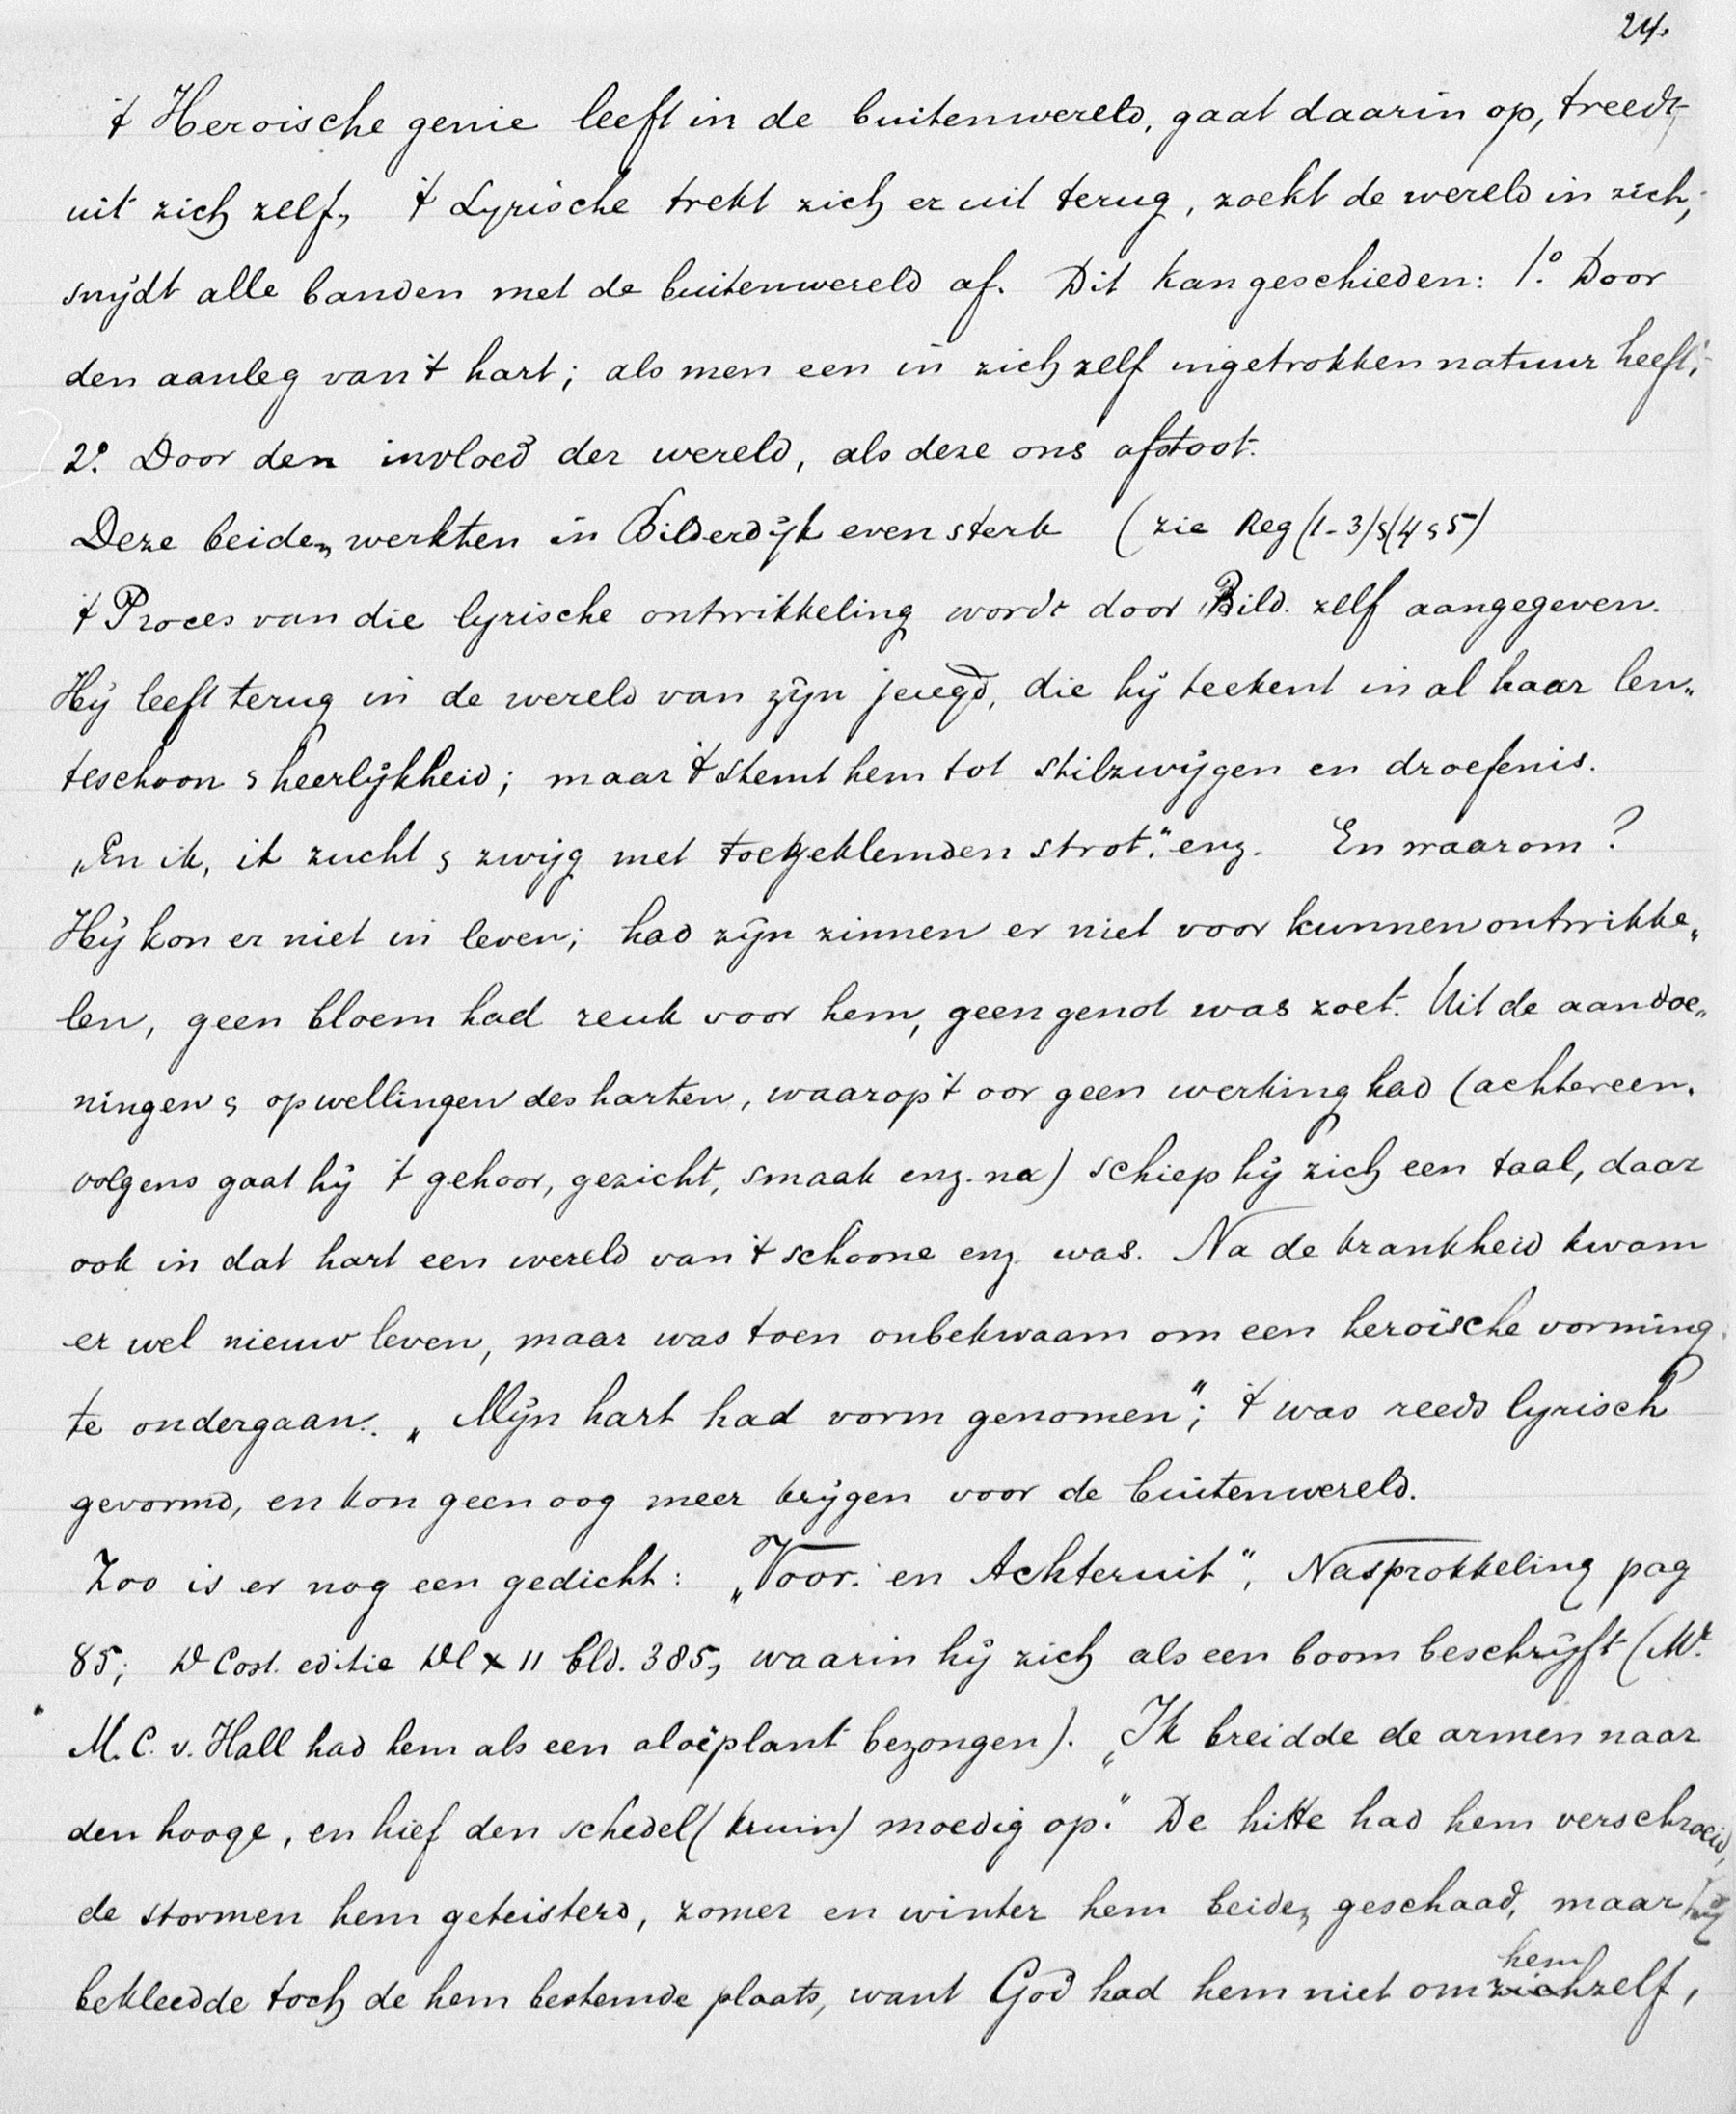 24.
't Heroische genie leeft in de buitenwereld, gaat daarin op, treedt
uit zich zelf, 't Lyrische trekt zich er uit terug, zoekt de wereld in zich,
snijdt alle banden met de buitenwereld af. Dit kan geschieden: 1.° Door
den aanleg van 't hart; als men een in zich zelf ingetrokken natuur heeft;
2.° Door den invloed der wereld, als deze ons afstoot.
Deze beiden werkten in Bilderdijk even sterk (zie Reg (1-3) & (4 & 5)
't Proces van die lyrische ontwikkeling wordt door Bild. zelf aangegeven.
Hij leeft terug in de wereld van zijn jeugd, die hij teekent in al haar len„
teschoon & heerlijkheid; maar 't stemt hem tot stilzwijgen en droefenis.
„En ik, ik zucht & zwijg met toegeklemden strot." enz. En waarom?
Hij kon er niet in leven; had zijn zinnen er niet voor kunnen ontwikke„
len, geen bloem had reuk voor hem, geen genot was zoet. Uit de aandoe„
ningen & opwellingen des harten, waarop 't oor geen werking had (achtereen„
volgens gaat hij 't gehoor, gezicht, smaak enz. na) schiep hij zich een taal, daar
ook in dat hart een wereld van 't schoone enz. was. Na de krankheid kwam
er wel nieuw leven, maar was toen onbekwaam om een heroische vorming
te ondergaan. „Mijn hart had vorm genomen"; 't was reeds lyrisch
gevormd, en kon geen oog meer krijgen voor de buitenwereld.
Zoo is er nog een gedicht: „Voor- en Achteruit", Nasprokkeling pag
85; D Cost. editie Dl XII bld. 385, waarin hij zich als een boom beschrijft (Mr.
M. C. v. Hall had hem als een aloëplant bezongen). „Ik breidde de armen naar
den hooge, en hief den schedel (kruin) moedig op." De hitte had hem verschroeid,
de stormen hem geteisterd, zomer en winter hem beiden geschaad, maar hij
bekleedde toch de hem bestemde plaats, want God had hem niet om zichzelf,
hem